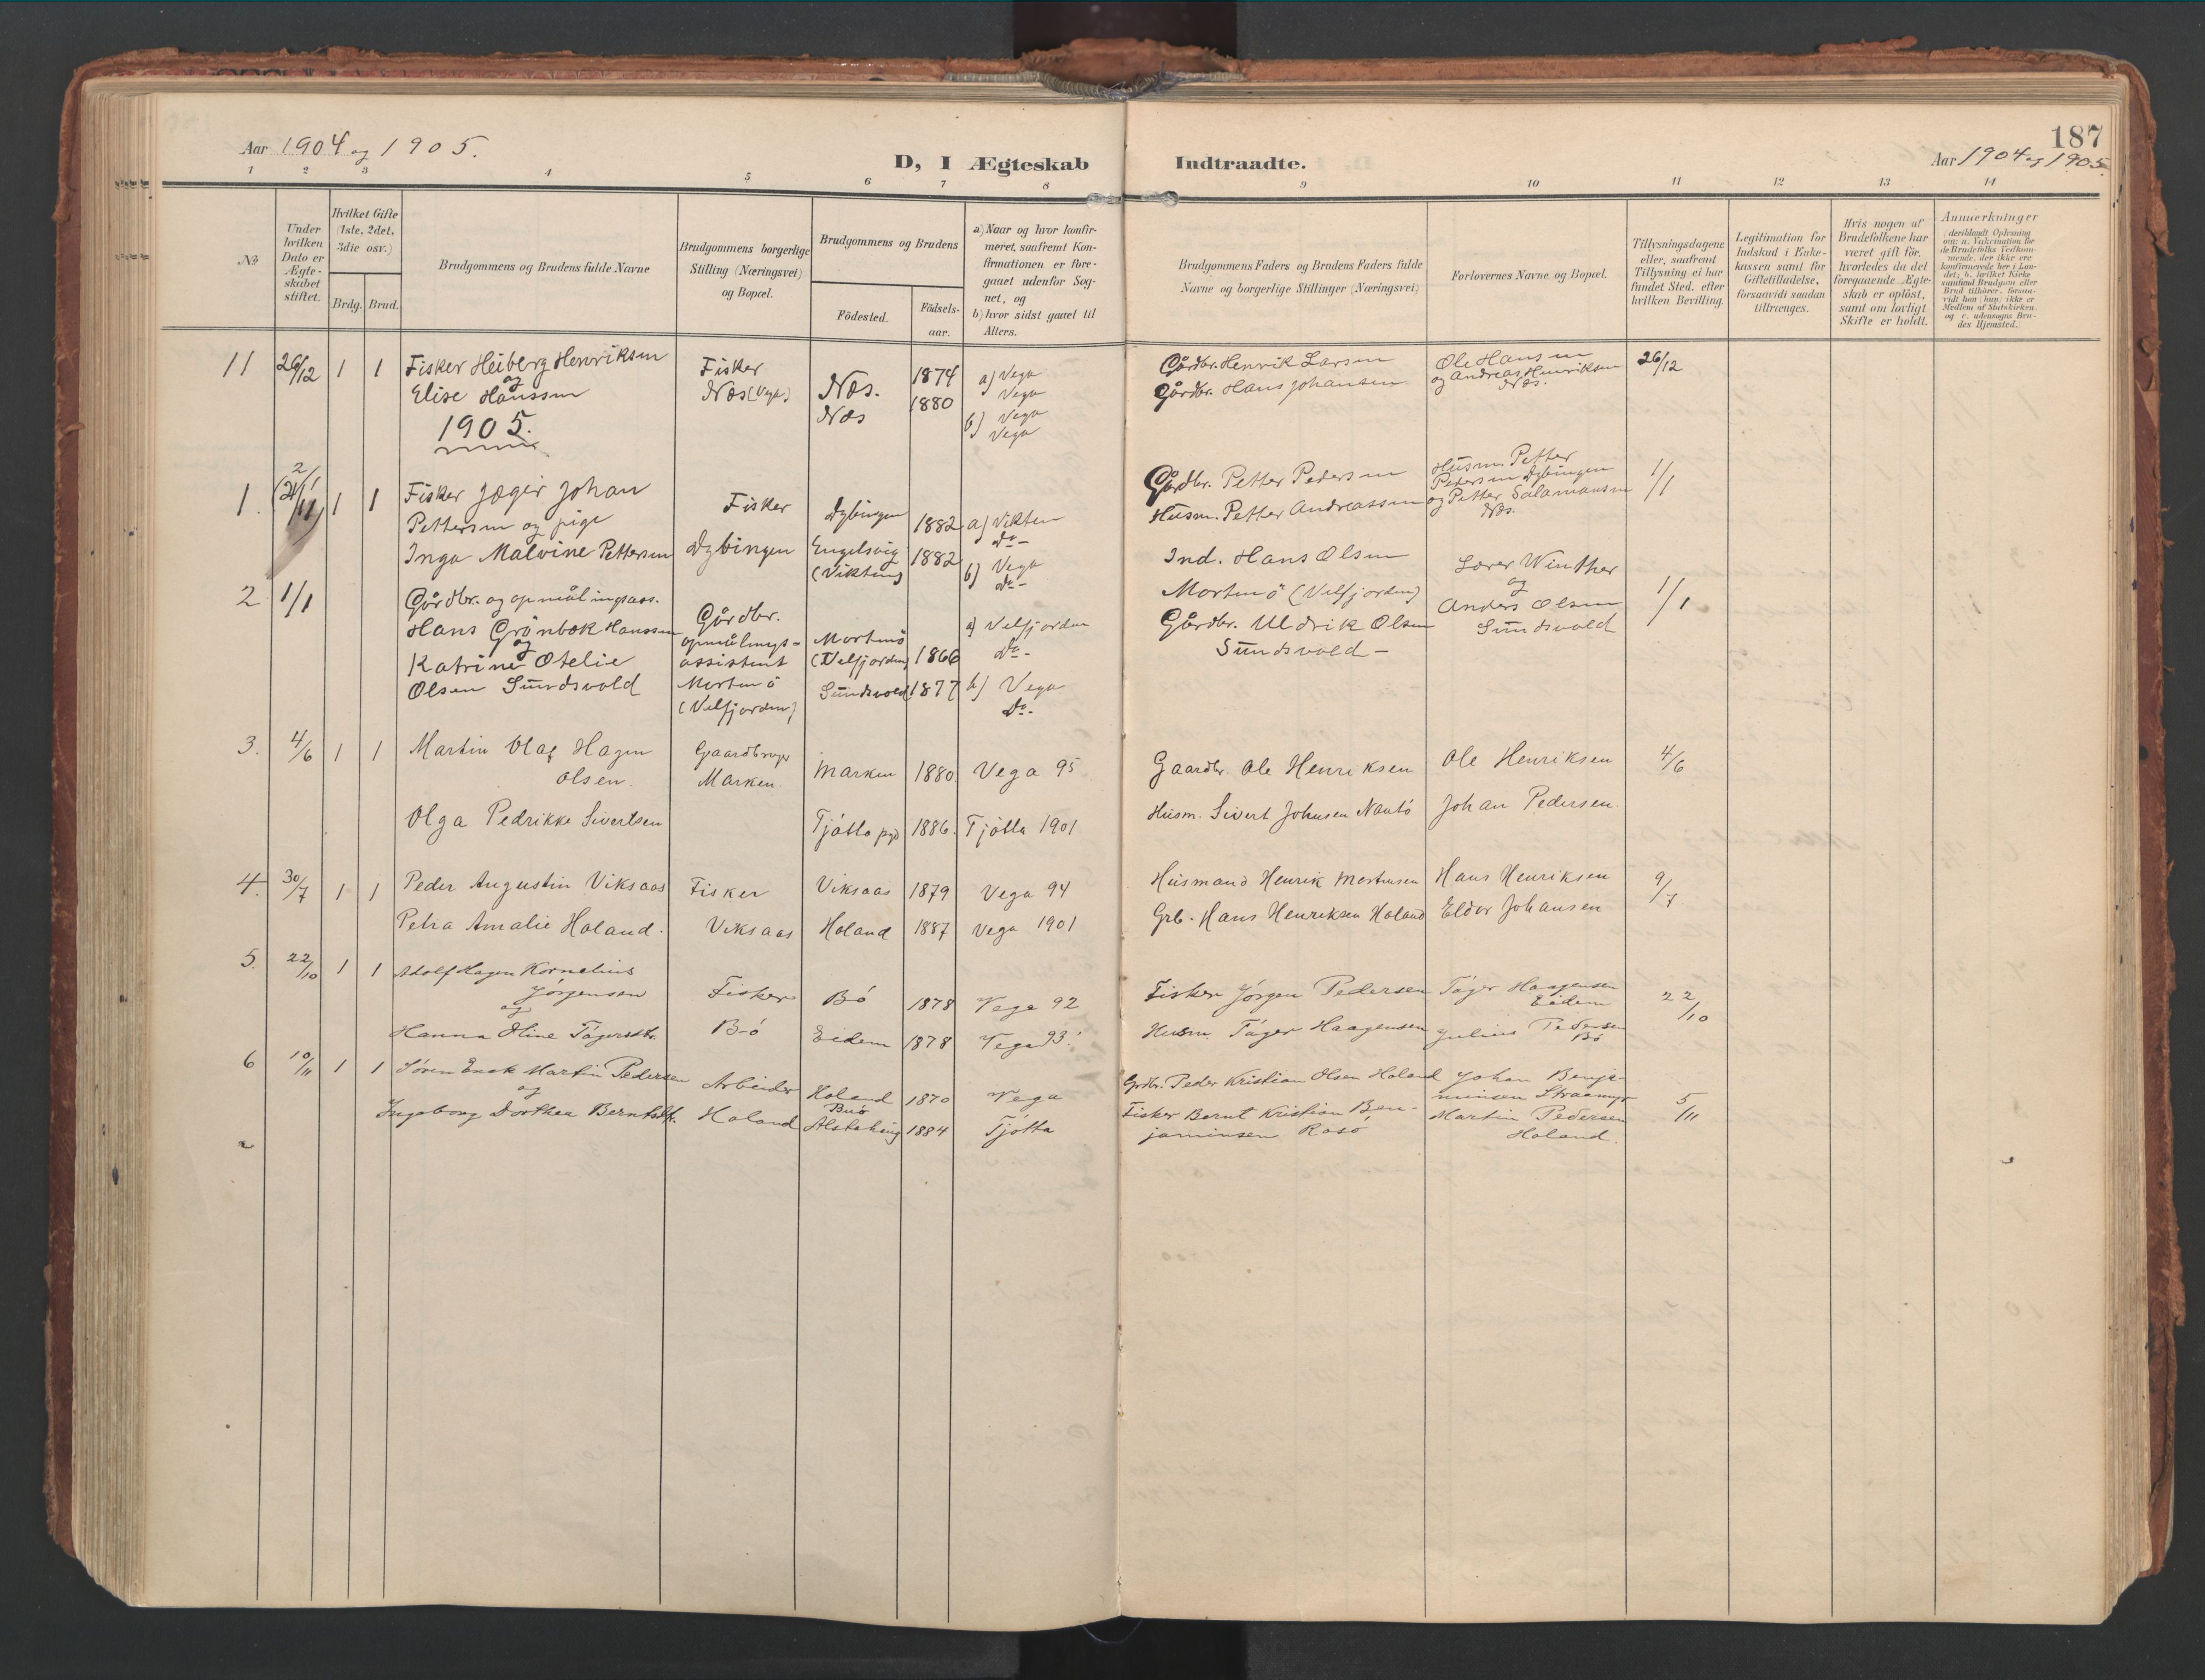 187
Aar 1904 og 1905.
D, I Ægteskab Indtraadte.
Aar 1904 og 1905
1 2 3 4 5 6 7 8 9 10 11 12 13 14
No
Under hvilken Dato er Ægteskabet stiftet.
Hvilket Gifte (1ste, 2det, 3die osv.)
Brdg. Brud.
Brudgommens og Brudens fulde Navne
Brudgommens borgerlige Stilling (Næringsvei) og Bopæl.
Brudgommens og Brudens
Fødested.
Fødselsaar.
a) Naar og hvor konfirmeret, saafremt Konfirmationen er foregaaet udenfor Sognet, og
b) hvor sidst gaaet til Alters.
Brudgommens Faders og Brudens Faders fulde Navne og borgerlige Stillinger (Næringsvei)
Forlovernes Navne og Bopæl.
Tillysningsdagene eller, saafremt Tillysning ei har fundet Sted, efter hvilken Bevilling.
Legitimation for Indskud i Enkekassen samt for Giftetilladelse, forsaavidt saadan tiltrænges.
Hvis nogen af Brudefolkene har været gift før, hvorledes da det foregaaende Ægteskab er opløst, samt om lovligt Skifte er holdt.
Anmerkninger (deriblandt Oplysning om: a. Vakcination for de Brudefolks Vedkommende, der ikke ere konfirmerede her i Landet; b. hvilket Kirkesamfund Brudgom eller Brud tilhører, forsaavidt han (hun) ikke er Medlem af Statskirken, og c. udensogns Brudes Hjemsted.
11 26/12 1 1 Fisker Heiberg Henriksen
og
Elise Hanssen
Fisker
Næs (Vega)
Næs. 1874
Næs 1880
a) Vega
Vega
b) Vega
Vega
Gårdbr. Henrik Larsen
Gårdbr. Hans Johansen
Ole Hansen
og Andreas Henriksen
Næs.
26/12
1905.
1. 2/1 1 1 Fisker Jæger Johan
Pettersen og pige
Inga Malvine Pettersen
Fisker
Dybingen
Dybingen 1882
Engelsvig 1882
(Vikten)
a) Vikten
Do-
b) Vega
Do-
Gårdbr. Petter Pedersen
Husm. Petter Andreassen
Husm. Petter
Pedersen Dybingen
og Petter Salamonsen
Næs.
1/1
2 1/1 Gårdbr. og opmålingsass.
Hans Grönbæk Hanssen
og
Katrine Otelie
Olsen Sundsvold
Gårdbr.
opmålings-
assistent
Mortenö
(Velfjorden)
Mortenö
(Velfjorden) 1866
Sundsvold 1877
a) Velfjorden
Do-
b) Vega
Do-
Ind. Hans Olsen
Mortenö (Velfjorden)
Gårdbr. Uldrik Olsen
Sundsvold -
Lærer Winther
og
Anders Olsen
Sundsvold
1/1
3. 4/6 1 1 Martin Olaf Hagen
Olsen.
Olga Pedrikke Sivertsen
Gaardbruger
Marken.
Marken 1880 Vega 95
Tjøtta pgd 1886. Tjøtta 1901
Gaardbr. Ole Henriksen
Husm. Sivert Johnsen Nautö
Ole Henriksen
Johan Pedersen.
4/6
4. 30/7 1 1 Peder Augustin Viksaas
Petra Amalie Holand.
Fisker
Viksaas
Viksaas 1879 Vega 94
Holand 1887 Vega 1901
Husmand Henrik Mortensen
Grb. Hans Henriksen Holand
Hans Henriksen
Eldor Johansen
9/7
5. 22/10 1 1 Adolf Hagen Kornelius
Jörgensen
og
Hanna Oline Tøgersdtr.
Fisker
Bö
Bö 1878 Vega 92
Eidem 1878 Vega 93.
Fisker Jörgen Pedersen
Husm. Tøger Haagensen
Tøger Haagensen
Eidem
Julius Pedersen
Bö
22/10
6 10/11 1 1 Søren Enok Martin Pedersen
og
Ingeborg Dorthea Berntsdtr.
Arbeider
Holand
Holand 1870 Vega
Alstahaug 1884 Tjøtta
Grdbr. Peder Kristian Olsen Holand
Fisker Bernt Kristian Ben-
jaminsen Rosö
Johan Benja-
minsen Straumyr
Martin Pedersen
Holand.
5/11